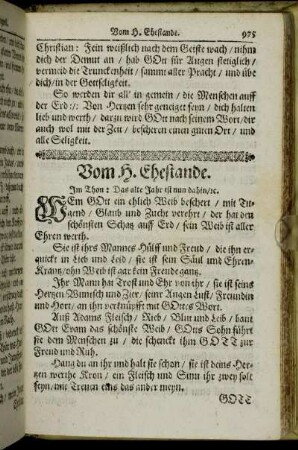 Vom H. Ehestande. 975
Christian: Fein weißlich nach dem Geiste wach/ nihm
dich der Demut an/ hab GOtt für Augen stetiglich/
vermeid die Trunckenheit/ sammt aller Pracht/ und übe
dich/ in der Gottseligkeit.
So werden dir all' in gemein/ die Menschen auff
der Erd :/: Von Hertzen sehr geneiget seyn/ dich halten
lieb und werth/ darzu wird GOtt nach seinem Wort/ dir
auch wol mit der Zeit/ bescheren einen guten Ort/ und
alle Seligkeit.
Vom H. Ehestande.
Im Thon: Das alte Jahr ist nun dahin/ ꝛc.
WEm GOtt ein ehlich Weib beschert/ mit Tu-
gend/ Glaub und Zucht verehrt/ der hat den
schönsten Schatz auff Erd/ sein Weib ist aller
Ehren werth.
Sie ist ihrs Mannes Hülff und Freud/ die ihn er-
quickt in Lieb und Leid/ sie ist sein Säul und Ehren-
Krantz/ ohn Weib ist gar kein Freude gantz.
Ihr Mann hat Trost und Ehr von ihr/ sie ist seins
Hertzen Wunsch und Zier/ seinr Augen Lust/ Freundin
und Hort/ an ihn verknüpfft mit GOttes Wort.
Auß Adams Fleisch/ Rieb/ Blut und Leib/ baut
GOtt Evam das schönste Weib/ GOttes Sohn führt
sie dem Menschen zu/ die schenckt ihm GOTT zur
Freud und Ruh.
Hang du an ihr und halt sie schon/ sie ist deins Her-
tzen werthe Kron/ ein Fleisch und Sinn ihr zwey solt
seyn/ mit Treuen eins das ander meyn.
GOTT